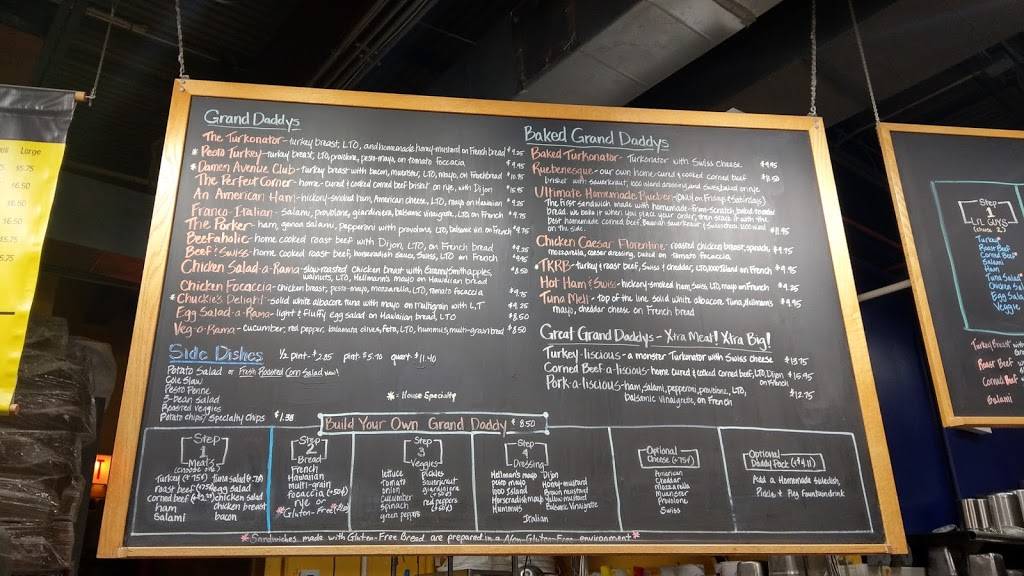 Large
$5.75
$6.50
Grand Daddys
The Turkonator - turkey breast, LTO, and homemade honey-mustard on French bread
* Pesto Turkey - turkey breast, LTO, provolone, pesto-mayo, on tomato focaccia
* Damen Avenue Club - turkey breast with bacon, muenster, LTO, mayo, on French bread
The Perfect Corner - home-cured & cooked corned beef brisket on rye, with Dijon
An American Ham - hickory-smoked ham, American cheese, LTO, mayo on Hawaiian
Franco-Italian - salami, provolone, giardinera, balsamic vinaigrette, LTO on French
The Porker - ham, genoa salami, pepperoni with provolone, LTO, balsamic vin on French
Beefaholic - home cooked roast beef with Dijon, LTO, on French bread
Beef & Swiss - home cooked roast beef, horseradish sauce, Swiss, LTO, on French
Chicken Salad-a-Rama - slow-roasted chicken breast with Granny Smith apples,
walnuts, LTO, Hellmann's mayo on Hawaiian bread
Chicken Focaccia - chicken breast, pesto-mayo, mozzarella, LTO, tomato focaccia
* Chuckie's Delight - solid white albacore tuna with mayo on multigrain with L,T
Egg Salad-a-Rama - light & fluffy egg salad on Hawaiian bread, LTO
Veg-a-Rama - cucumber, red pepper, kalamata olives, feta, LTO, hummus, multi-grain bread $8.50
Side Dishes 1/2 pint - $2.85 pint - $5.70 quart - $11.40
Potato Salad or Fresh Roasted Corn Salad
Cole Slaw
Pesto Penne
3-Bean Salad
Roasted Veggies
Potato chips / Specialty Chips $1.38
* - House Specialty
Baked Grand Daddys
Baked Turkonator - Turkonator with Swiss cheese $9.95
Ruebenesque - our own home-cured & cooked corned beef
brisket with sauerkraut, 1000 island dressing, and Swiss, baked on rye
Ultimate Homemade Rueben - (only on Fridays & Saturdays)
The first sandwich made with homemade-from-scratch, baked to order
bread. We bake it when you place your order, then stack it with the
best homemade corned beef, Bavarian sauerkraut & Swiss. 1000 island
on the side. $11.95
Chicken Caesar Florentine - roasted chicken breast, spinach,
mozzarella, caesar dressing, baked on tomato focaccia $9.75
TKRB - turkey & roast beef, Swiss & cheddar, LTO, 1000 Island on French $9.95
Hot Ham & Swiss - hickory-smoked ham, Swiss, LT, mayo on French
Tuna Melt - top of the line solid white albacore Tuna, Hellmann's $9.95
mayo, cheddar cheese on French bread
Great Grand Daddys - Xtra Meat! Xtra Big!
Turkey-liscious - a monster Turkonator with Swiss cheese $13.75
Corned Beef-a-liscious - home cured & cooked corned beef, LTO, Dijon $15.95
on French
Pork-a-liscious - ham, salami, pepperoni, provolone, LTO,
balsamic vinaigrette, on French $12.75
Build Your Own Grand Daddy $8.50
Step
1
Meats
Turkey
roast beef
corned beef
ham
Salami
Tuna salad
egg salad
chicken salad
chicken breast
bacon
Step
2
Bread
French
Hawaiian
multi-grain
focaccia (+50¢)
rye or
*Gluten-Free*
Step
3
Veggies
lettuce
tomato
onion
cucumber
spinach
green peppers
pickles
Sauerkraut
giardiniera
red peppers
Step
4
Dressing
Hellmann's mayo
pesto mayo
1000 Island
Horseradish mayo
Hummus
Dijon
Honey-mustard
Brown mustard
yellow mustard
Balsamic Vinaigrette
Italian
Optional
Cheese (+75¢)
American
Cheddar
Mozzarella
Muenster
Provolone
Swiss
Optional
Daddy Pack (+$4.11)
Add a Homemade Sidedish,
Pickle & Big Fountain drink
*Sandwiches made with Gluten-Free Bread are prepared in a Non-Gluten-Free environment*
Step
1
Turkey
Roast Beef
Corned Beef
Salami
Ham
Tuna Salad
Chicken Salad
Egg Salad
Veggie
Turkey Breast
Roast Beef
Corned Beef
Salami